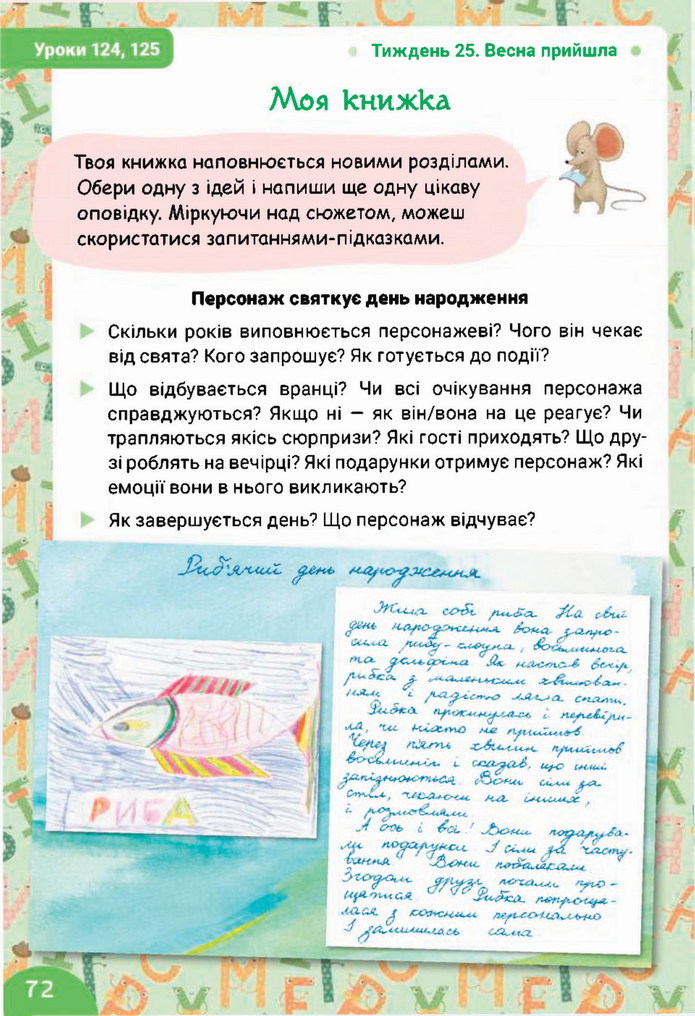 Уроки 124, 125
Тиждень 25. Весна прийшла
Моя книжка
Твоя книжка наповнюється новими розділами.
Обери одну з ідей і напиши ще одну цікаву
оповідку. Міркуючи над сюжетом, можеш
скористатися запитаннями-підказками.
Персонаж святкує день народження
Скільки років виповнюється персонажеві? Чого він чекає
від свята? Кого запрошує? Як готується до події?
Що відбувається вранці? Чи всі очікування персонажа
справджуються? Якщо ні – як він/вона на це реагує? Чи
трапляються якісь сюрпризи? Які гості приходять? Що дру-
зі роблять на вечірці? Які подарунки отримує персонаж? Які
емоції вони в нього викликають?
Як завершується день? Що персонаж відчуває?
Риб'ячий день народження
РИБА
Жила собі риба На свій
день народження вона запро-
сила рибу-клоуна, восьминога
та дельфіна Як настав вечір,
рибка з маленьким хвилюван-
ням і радістю лягла спати.
Рибка прокинулась і перевіри-
ла, чи ніхто не прийшов
Через п'ять хвилин прийшов
восьминіг і сказав, що інші
запізнюються Вони сіли за
стіл, чекаючи на інших,
і розмовляли.
А ось і всі! Вони подарува-
ли подарунки І сіли за часту-
вання Вони побалакали
Згодом друзі почали про-
щатися Рибка попроща-
лася з кожним персонально
І залишилась сама.
72